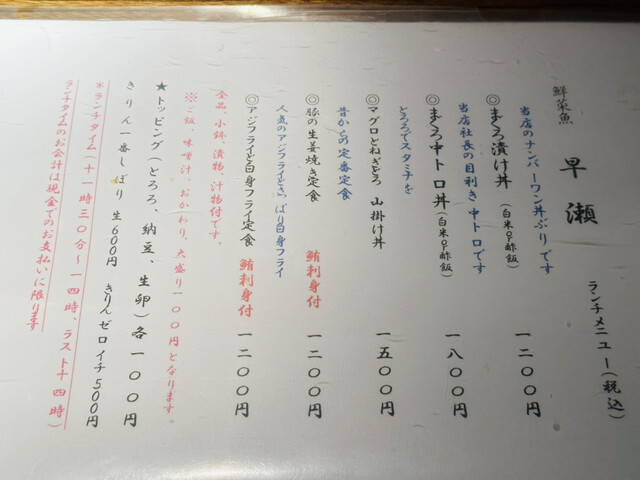 鮮菜魚 早瀬 ランチメニュー(税込)
当店のナンバーワン丼ぶりです
◎まぐろ漬け丼(白米or酢飯) 一二〇〇円
当店社長の目利き中トロです
◎まぐろ中トロ丼(白米or酢飯) 一八〇〇円
とろろでスタミナを
◎マグロとねぎとろ 山掛け丼 一五〇〇円
昔からの定番定食
◎豚の生姜焼き定食 鮪刺身付 一二〇〇円
人気のアジフライとさっぱり白身フライ
◎アジフライと白身フライ定食 鮪刺身付 一二〇〇円
全品、小鉢、漬物、汁物付です。
※ご飯、味噌汁、おかわり、大盛り一〇〇円となります。
★トッピング(とろろ、納豆、生卵)各一〇〇円
きりん一番しぼり 生600円 きりんゼロイチ500円
*ランチタイム(十一時三〇分~一四時、ラスト十四時)
ランチタイムのお会計は現金でのお支払いに限ります